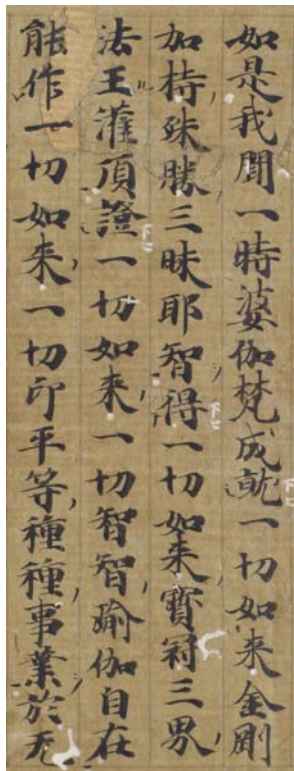 如是我聞一時婆伽梵成就一切如来金剛
加持殊勝三昧耶智得一切如来寳冠三界
法王灌頂證一切如来一切智智瑜伽自在
能作一切如来一切印平等種種事業於无